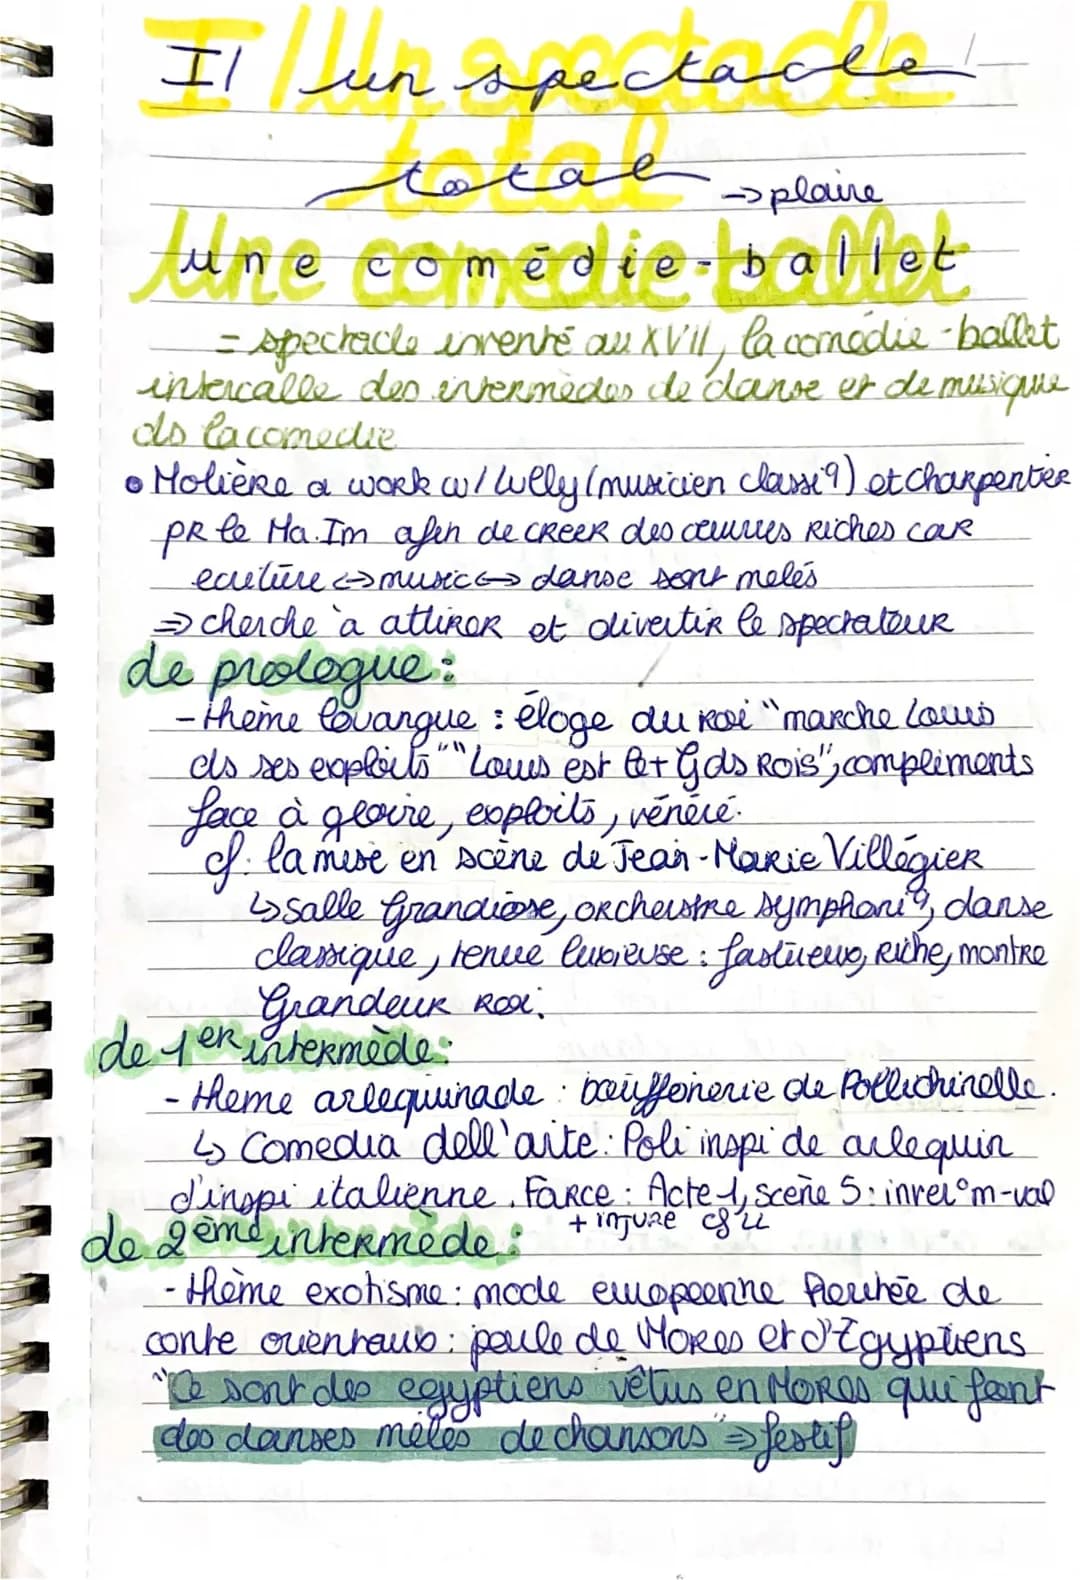 I/ Un spectacle
total
→ plaire
Une comédie-ballet
= spectacle inventé au XVII, la comédie-ballet
intercalle des intermèdes de danse et de musique
ds la comedie
• Molière a work w/ Lully (musicien classiq) et Charpentier
PR le Ma.Im afin de CREER des œuvres Riches car
ecriture ↔ music ↔ danse sont melés
⇒ cherche à attirer et divertir le spectateur
de prologue :
- thème louangue : éloge du Roi "marche Louis
ds ses exploits" "Louis est le + Gds Rois", compliments
face à gloire, exploits, vénéré.
cf. la mise en scène de Jean-Marie Villégier
↳ salle Grandiose, orcherstre symphoniq, danse
classique, tenue luxieuse : fastueux, Riche, montre
Grandeur Roi.
de 1er intermède :
- theme arlequinade : bouffonerie de Pollichinelle.
↳ Comedia dell'arte : Poli inspi de arlequin
d'inspi italienne. Farce : Acte 1, scène 5 : inver°m-val
+ injure
de 2ème intermède :
- thème exotisme : mode europeenne
de
conte orientaux : peule de Mores et d'Egyptiens
"Ce sont des egyptiens vêtus en Mores qui font
des danses mêlés de chansons" ⇒ festif